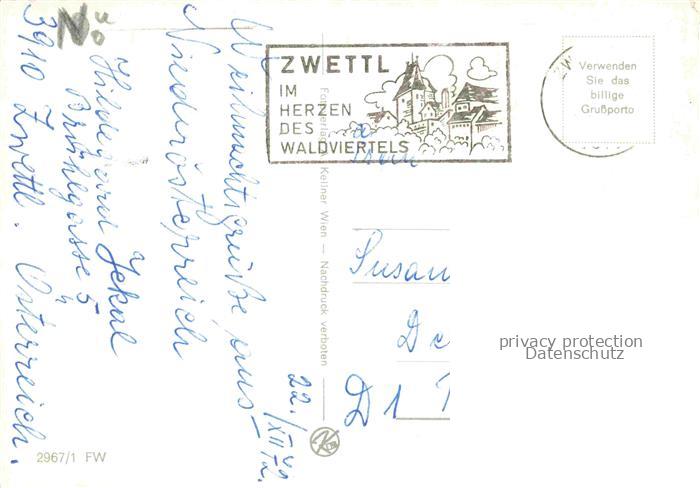 Nö
ZWETTL
IM
HERZEN
DES
WALDVIERTELS
Verwenden
Sie das
billige
Grußporto
Weihnachtsgrüße aus
Niederösterreich
22./XII 72.
Hildegard Jekal
Brühlgasse 5
3910 Zwettl. Österreich.
Kellner Wien — Nachdruck verboten
Susan
De
D 1
privacy protection
Datenschutz
2967/1 FW